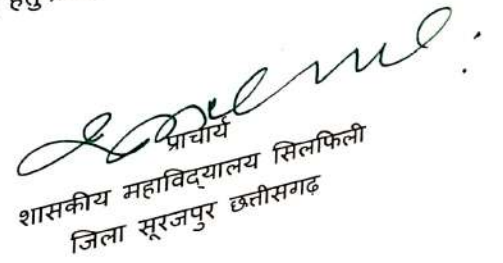 हेतु
प्राचार्य
शासकीय महाविद्यालय सिलफिली
जिला सूरजपुर छत्तीसगढ़